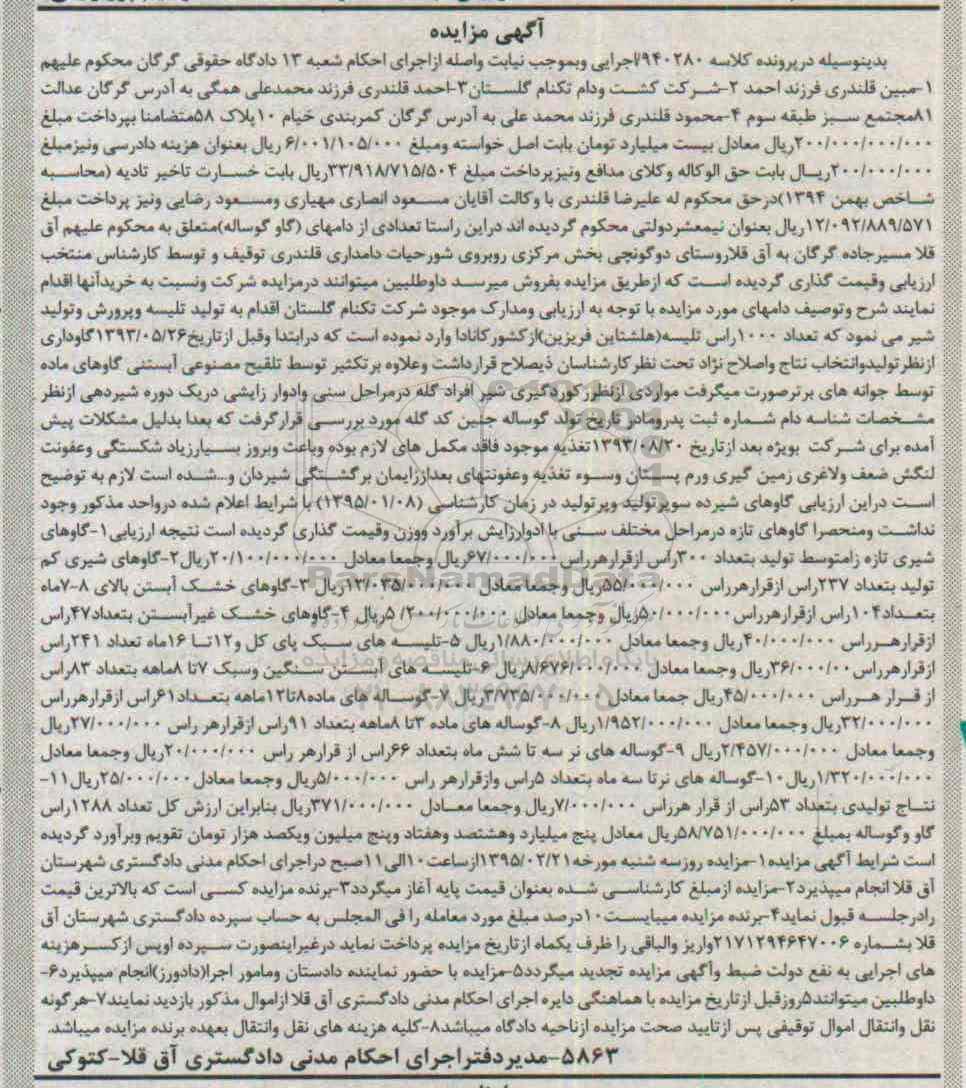 آگهی مزایده
بدینوسیله درپرونده کلاسه ۹۴۰۲۸۰/اجرایی وبموجب نیابت واصله ازاجرای احکام شعبه ۱۳ دادگاه حقوقی گرگان محکوم علیهم
۱-مبین قلندری فرزند احمد ۲-شرکت کشت ودام تکنام گلستان۳-احمد قلندری فرزند محمدعلی همگی به آدرس گرگان عدالت
۸۱مجتمع سبز طبقه سوم ۴-محمود قلندری فرزند محمد علی به آدرس گرگان کمربندی خیام ۱۰پلاک ۵۸متضامنا بپرداخت مبلغ
۲۰۰/۰۰۰/۰۰۰/۰۰۰ریال معادل بیست میلیارد تومان بابت اصل خواسته ومبلغ ۶/۰۰۱/۱۰۵/۰۰۰ ریال بعنوان هزینه دادرسی ونیزمبلغ
۲۰۰/۰۰۰/۰۰۰ریال بابت حق الوکاله وکلای مدافع ونیزپرداخت مبلغ ۳۳/۹۱۸/۷۱۵/۵۰۴ریال بابت خسارت تاخیر تادیه (محاسبه
شاخص بهمن ۱۳۹۴)درحق محکوم له علیرضا قلندری با وکالت آقایان مسعود انصاری مهیاری ومسعود رضایی ونیز پرداخت مبلغ
۱۲/۰۹۲/۸۸۹/۵۷۱ریال بعنوان نیمعشردولتی محکوم گردیده اند دراین راستا تعدادی از دامهای (گاو گوساله)متعلق به محکوم علیهم آق
قلا مسیرجاده گرگان به آق قلاروستای دوگونچی بخش مرکزی روبروی شورحیات دامداری قلندری توقیف و توسط کارشناس منتخب
ارزیابی وقیمت گذاری گردیده است که ازطریق مزایده بفروش میرسد داوطلبین میتوانند درمزایده شرکت ونسبت به خریدآنها اقدام
نمایند شرح وتوصیف دامهای مورد مزایده با توجه به ارزیابی ومدارک موجود شرکت تکنام گلستان اقدام به تولید تلیسه وپرورش وتولید
شیر می نمود که تعداد ۱۰۰۰راس تلیسه(هلشتاین فریزین)ازکشورکانادا وارد نموده است که درابتدا وقبل ازتاریخ۱۳۹۳/۰۵/۲۶گاوداری
ازنظرتولیدوانتخاب نتاج واصلاح نژاد تحت نظرکارشناسان ذیصلاح قرارداشت وعلاوه برتکثیر توسط تلقیح مصنوعی آبستنی گاوهای ماده
توسط جوانه های برترصورت میگرفت مواردی ازنظر رکوردگیری شیر افراد گله درمراحل سنی وادوار زایشی دریک دوره شیردهی ازنظر
مشخصات شناسه دام شماره ثبت پدرومادر تاریخ تولد گوساله جنین کد گله مورد بررسی قرارگرفت که بعدا بدلیل مشکلات پیش
آمده برای شرکت بویژه بعد ازتاریخ ۱۳۹۳/۰۷/۲۰تغذیه موجود فاقد مکمل های لازم بوده وباعث وبروز بسیارزیاد شکستگی وعفونت
لنگش ضعف ولاغری زمین گیری ورم پستان وسوء تغذیه وعفونتهای بعداززایمان برگشتگی شیردان و...شده است لازم به توضیح
است دراین ارزیابی گاوهای شیرده سوپرتولید وپرتولید در زمان کارشناسی (۱۳۹۵/۰۱/۰۸) با شرایط اعلام شده درواحد مذکور وجود
نداشت ومنحصرا گاوهای تازه درمراحل مختلف سنی با ادوارزایش برآورد ووزن وقیمت گذاری گردیده است نتیجه ارزیابی۱-گاوهای
شیری تازه زامتوسط تولید بتعداد ۳۰۰راس ازقرارهرراس ۶۷/۰۰۰/۰۰۰ریال وجمعا معادل ۲۰/۱۰۰/۰۰۰/۰۰۰ریال۲-گاوهای شیری کم
تولید بتعداد ۲۳۷راس ازقرارهرراس ۵۵/۰۰۰/۰۰۰ریال وجمعا معادل ۱۳/۰۳۵/۰۰۰/۰۰۰ریال۳-گاوهای خشک آبستن بالای ۸-۷ماه
بتعداد۱۰۴راس ازقرارهرراس۵۰/۰۰۰/۰۰۰ریال وجمعا معادل ۵/۲۰۰/۰۰۰/۰۰۰ ریال ۴-گاوهای خشک غیرآبستن بتعداد۴۷راس
ازقرارهرراس ۴۰/۰۰۰/۰۰۰ریال وجمعا معادل ۱/۸۸۰/۰۰۰/۰۰۰ریال ۵-تلیسه های سبک پای کل و۱۲تا ۱۶ماه تعداد ۲۴۱راس
ازقرارهرراس۳۶/۰۰۰/۰۰۰ریال وجمعا معادل ۸/۶۷۶/۰۰۰/۰۰۰ریال ۶-تلیسه های آبستن سنگین وسبک ۷تا ۸ماهه بتعداد ۸۳راس
از قرار هرراس ۴۵/۰۰۰/۰۰۰ریال جمعا معادل ۳/۷۳۵/۰۰۰/۰۰۰ریال ۷-گوساله های ماده۸تا۱۲ماهه بتعداد۶۱راس ازقرارهرراس
۳۲/۰۰۰/۰۰۰ریال وجمعا معادل ۱/۹۵۲/۰۰۰/۰۰۰ریال ۸-گوساله های ماده ۳تا ۸ماهه بتعداد ۹۱راس ازقرارهر راس ۲۷/۰۰۰/۰۰۰ریال
وجمعا معادل ۲/۴۵۷/۰۰۰/۰۰۰ریال ۹-گوساله های نر سه تا شش ماه بتعداد ۶۶راس از قرارهر راس ۲۰/۰۰۰/۰۰۰ریال وجمعا معادل
۱/۳۲۰/۰۰۰/۰۰۰ریال۱۰-گوساله های نرتا سه ماه بتعداد ۵راس وازقرارهر راس ۵/۰۰۰/۰۰۰ریال وجمعا معادل۲۵/۰۰۰/۰۰۰ریال۱۱-
نتاج تولیدی بتعداد ۵۳راس از قرار هرراس ۷/۰۰۰/۰۰۰ریال وجمعا معادل ۳۷۱/۰۰۰/۰۰۰ریال بنابراین ارزش کل تعداد ۱۲۸۸راس
گاو وگوساله بمبلغ ۵۸/۷۵۱/۰۰۰/۰۰۰ریال معادل پنج میلیارد وهشتصد وهفتاد وپنج میلیون ویکصد هزار تومان تقویم وبرآورد گردیده
است شرایط آگهی مزایده۱-مزایده روزسه شنبه مورخه۱۳۹۵/۰۲/۲۱ازساعت۱۰الی۱۱صبح دراجرای احکام مدنی دادگستری شهرستان
آق قلاانجام میپذیرد۲-مزایده ازمبلغ کارشناسی شده بعنوان قیمت پایه آغاز میگردد۳-برنده مزایده کسی است که بالاترین قیمت
رادرجلسه قبول نماید۴-برنده مزایده میبایست۱۰درصد مبلغ مورد معامله را فی المجلس به حساب سپرده دادگستری شهرستان آق
قلا بشماره ۲۱۷۱۲۹۴۶۴۷۰۰۶واریز والباقی را ظرف یکماه ازتاریخ مزایده پرداخت نماید درغیراینصورت سپرده اوپس ازکسرهزینه
های اجرایی به نفع دولت ضبط وآگهی مزایده تجدید میگردد۵-مزایده با حضور نماینده دادستان ومامور اجرا(دادورز)انجام میپذیرد۶-
داوطلبین میتوانند۵روزقبل ازتاریخ مزایده با هماهنگی دایره اجرای احکام مدنی دادگستری آق قلا ازاموال مذکور بازدید نمایند۷-هرگونه
نقل وانتقال اموال توقیفی پس ازتایید صحت مزایده ازناحیه دادگاه میباشد۸-کلیه هزینه های نقل وانتقال بعهده برنده مزایده میباشد.
۵۸۶۳-مدیردفتراجرای احکام مدنی دادگستری آق قلا-کتوکی
ParsNamadData